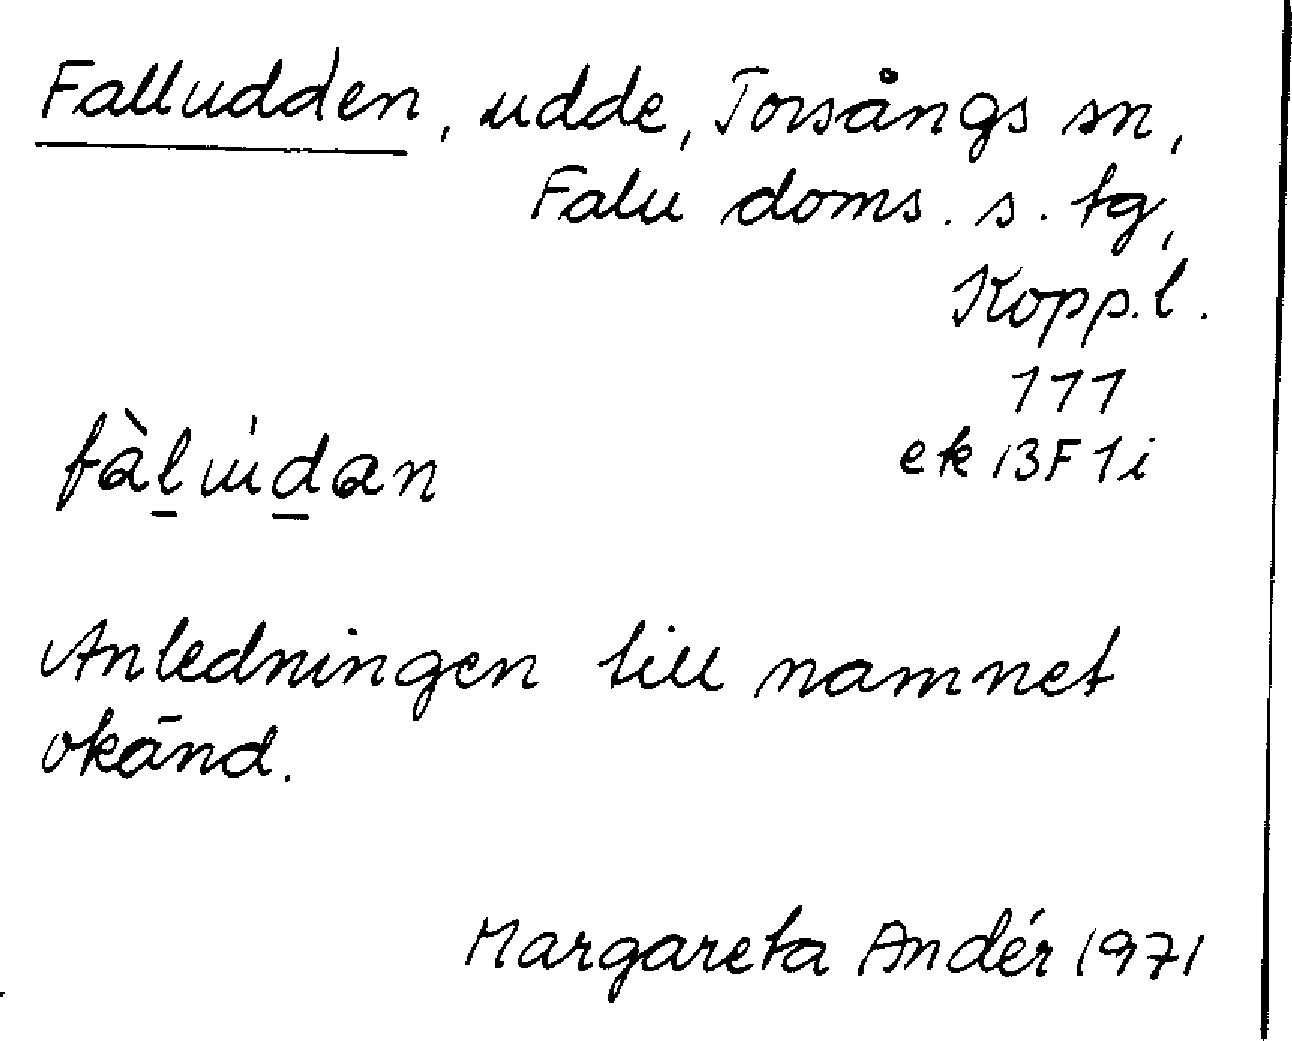 Falludden, udde, Torsångs sn,
Falu doms. s. tg,
Kopp.l.
111
fàl̲ùd̲an
ek 13F 1i
Anledningen till namnet
okänd.
Margareta Andér 1971